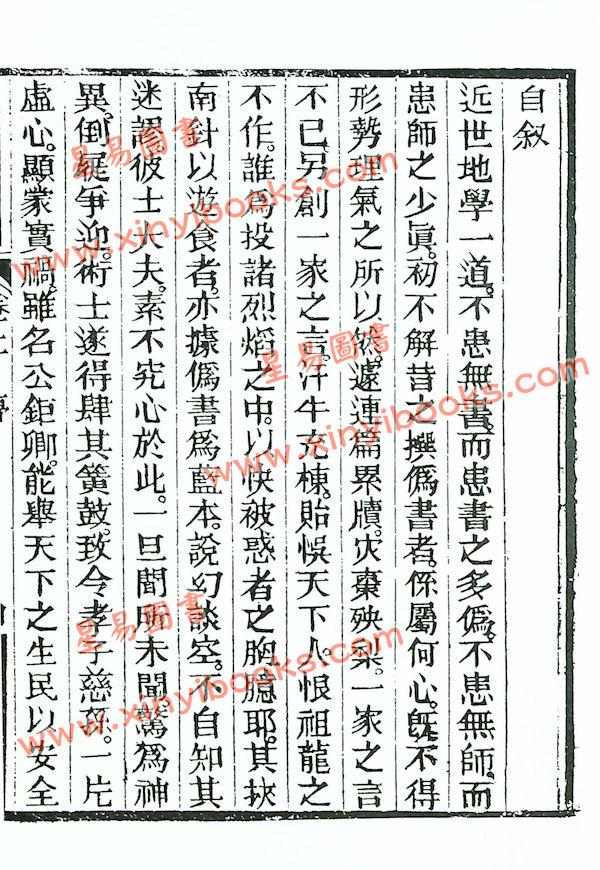 自叙
近世地學一道。不患無書。而患書之多僞。不患無師。而
患師之少眞。初不解昔之撰僞書者。係屬何心。旣不得
形勢理氣之所以然。遽連篇累牘。灾棗殃梨。一家之言
不已。另創一家之言。汗牛充棟。貽悞天下人。恨祖龍之
不作。誰爲投諸烈熖之中。以快被惑者之胸臆耶。其挾
南針以遊食者。亦據僞書爲藍本。說幻談空。不自知其
迷謬。彼士大夫。素不究心於此。一旦聞所未聞。驚爲神
異。倒屣爭迎。術士遂得肆其簧鼓。致令孝子慈孫。一片
虛心。顯蒙實禍。雖名公鉅卿。能舉天下之生民以安全
星易圖書
www.xinyibooks.com
星易圖書
www.xinyibooks.com
星易圖書
www.xinyibooks.com